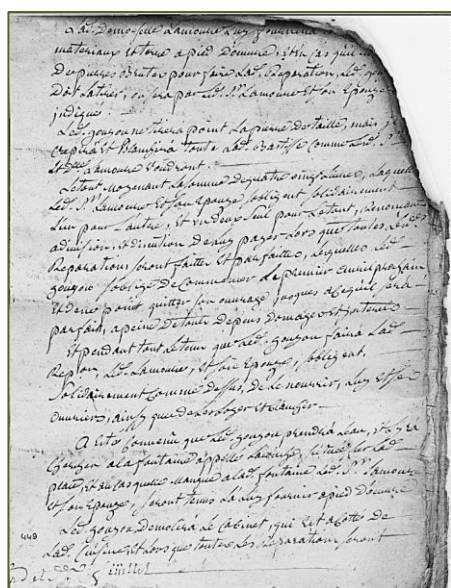 Lad. Demoiselle Lamoure luy fournira
materiaux et terre a pied Doeuvre, et en cas qu'il
De pierres Brutes pour faire Lad. Reparation, Led. gou
Doit Latirer, ou sera par led. Sr. Lamoure et son Epouze
indiqué
Led. gouzou ne tirera point La pierre de taille, mais
crepira et Blanchira toute Lad. Batisse comme Led. Sr.
et dlle Lamoure voudront
Le tout moyenant La somme de quatre onze Livres, Laquelle
Led. Sr. Lamoure et son Epouze obligent solidairement
L'un pour L'autre, et un Deux seul pour Le tout, Renoncant
a division, et discution De luy payer Lors que toutes Les
Reparations seront faittes et parfaittes, Lesquelles Led.
gouzou s'oblige De commencer Le premier avril prochain
et de ne point quitter son ouvrage jusques a ce quil sera
parfait, a peine de tous Depens, Domages et interets
Et pendant tout Le tems que Led. gouzou faira Lad.
Repon., Led. Lamoure, et son Epouze, obligent
Solidairement comme dessus, De Le nourrir, Luy et ses
ouvriers, ainsy que de Les Loger et
A eté convenu que Led. gouzou prendra L'eau, et
a La fontaine appellée située sur Lad.
place, et en cas quelle manque a Lad. fontaine Led. Sr. Lamoure
et son Epouze, seront tenus La Luy fournir a pied D'oeuvre
Led. gouzou Demolira Le Cabinet, qui est a Cotté de
Lad. Cuisine, et Lors que toutes Les Reparations seront
449